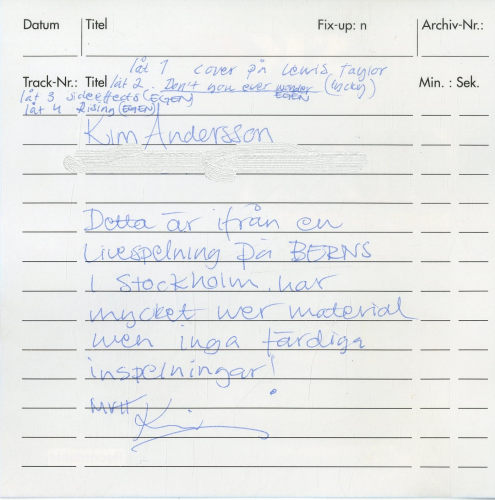 Datum Titel Fix-up: n Archiv-Nr.:
låt 1 cover på Lewis Taylor
Track-Nr.: Titel låt 2. Don't you ever wonder (lycky) Min. : Sek.
låt 3 sideeffects (EGEN) EGEN
låt 4 Rising (EGEN)
Kim Andersson
Detta är ifrån en
Livespelning på BERNS
I Stockholm, har
mycket mer material
men inga färdiga
inspelningar!
MVH Kim